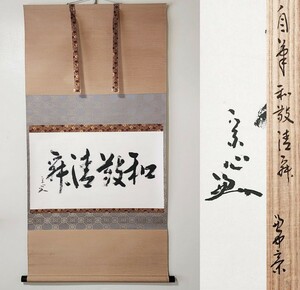 和敬清寂
宗心
自筆 和敬清寂